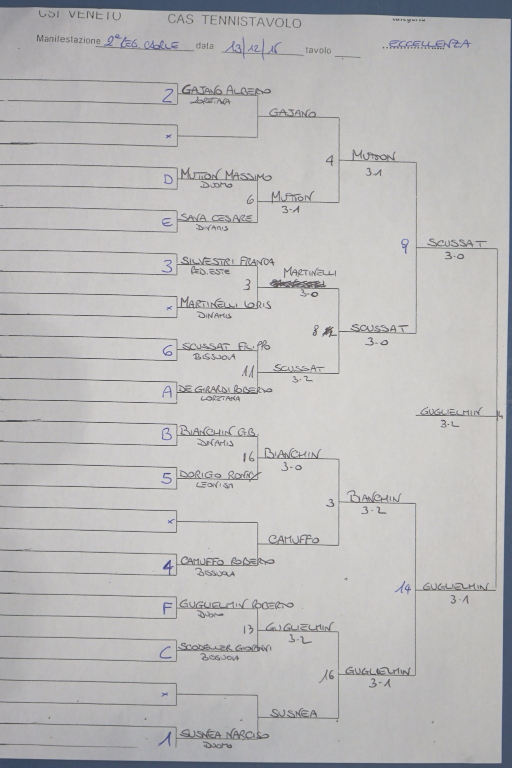 CSI VENETO
CAS TENNISTAVOLO
Manifestazione 2ª PEG CAORLE data 13/12/15 tavolo
ECCELLENZA
2 GAJANO ALBERTO
GAJANO
x
4 MUTTON
3-1
D MUTTON MASSIMO
DUOMO
6 MUTTON
3-1
E SAVA CESARE
DINAMIS
9 SCUSSAT
3-0
3 SILVESTRI FRANCA
PED. ESTE
3 MARTINELLI
3-0
x MARTINELLI LORIS
DINAMIS
8 SCUSSAT
3-0
6 SCUSSAT FILIPPO
BISSUOLA
11 SCUSSAT
3-2
A DE GIRARDI ROBERTO
GUGLIELMIN
3-2
B BIANCHIN G.B.
DINAMIS
16 BIANCHIN
3-0
5 DORIGO
3 BIANCHIN
3-2
x
CAMUFFO
4 CAMUFFO ROBERTO
BISSUOLA
14 GUGLIELMIN
3-1
F GUGLIELMIN ROBERTO
DUOMO
13 GUGLIELMIN
3-2
C
BISSUOLA
16 GUGLIELMIN
3-1
x
SUSNEA
1 SUSNEA NARCISO
DUOMO